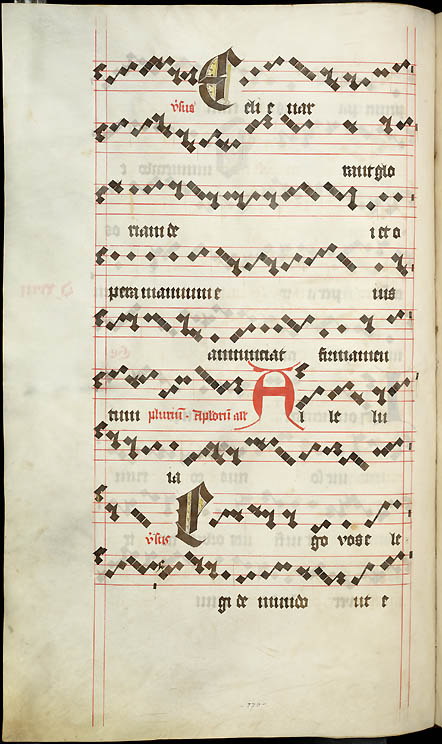 v̄sus C eli e nar
rant glo
riam de i et o
pera manuum e ius
annunciat firmamen
tum pluriū. Aplorū all A l le lu
ia
v̄sus E go vos e le
gi de mundo ut e